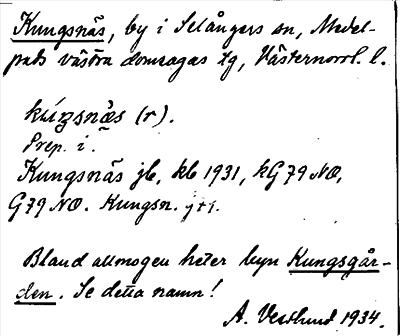 Kungsnäs, by i Selångers sn, Medel-
pads västra domsagas tg, Västernorrl. l.
kúŋsnä̀s (r).
Prep. i.
Kungsnäs jb, kb 1931, kG 79 NO,
G 79 NO. Kungsn. jr1.
Bland allmogen heter byn Kungsgår-
den. Se detta namn!
A. Vestlund 1934.